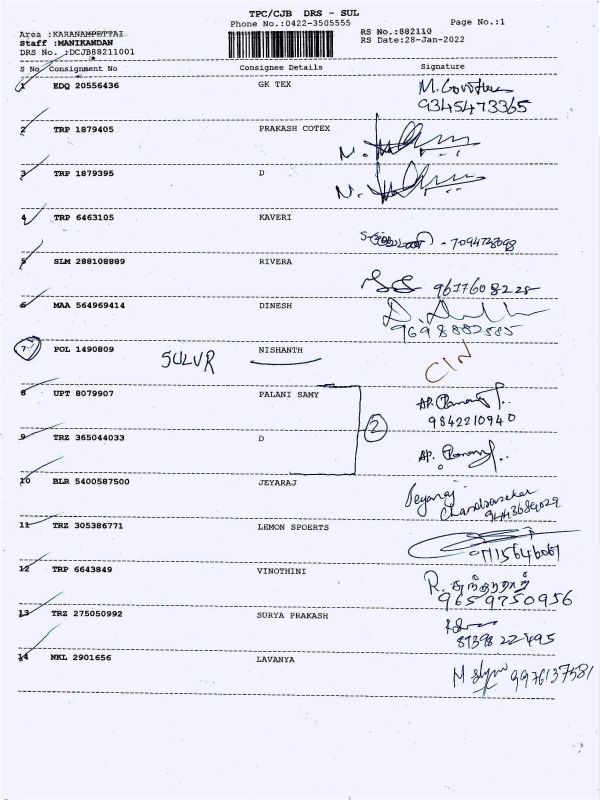 TPC/CJB DRS - SUL
Phone No.:0422-3505555
Page No.:1
Area :KARANAMPETTAI
Staff :MANIKANDAN
DRS No. :DCJB88211001
RS No.:882110
RS Date:28-Jan-2022
S No Consignment No Consignee Details Signature
1 EDQ 20556436 GK TEX
9345473365
2 TRP 1879405 PRAKASH COTEX
3 TRP 1879395 D
4 TRP 6463105 KAVERI
5 SLM 288108889 RIVERA
9617608228
6 MAA 564969414 DINESH
9698882585
7 POL 1490809 SULVR NISHANTH CIN
8 UPT 8079907 PALANI SAMY
9842210940
2
9 TRZ 365044033 D
10 BLR 5400587500 JEYARAJ Jeyaraj
Chandrasekar
11 TRZ 305386771 LEMON SPOERTS
12 TRP 6643849 VINOTHINI
9659750956
13 TRZ 275050992 SURYA PRAKASH
14 NKL 2901656 LAVANYA
9976137581